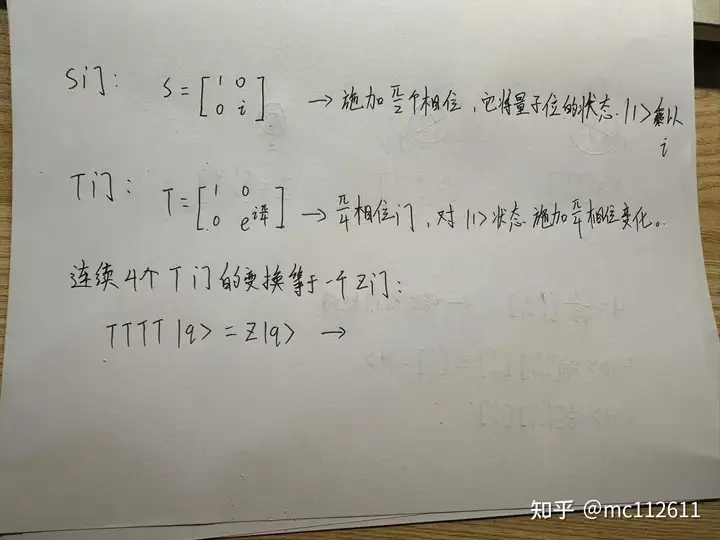 S门: S = [1 0 0 i] → 施加 π/2 个相位，它将量子位的状态 |1> 乘以 i
T门: T = [1 0 0 e^{iπ/4}] → π/4 相位门，对 |1> 状态施加 π/4 相位变化。
连续4个T门的变换等于一个Z门:
TTTT|q> = Z|q> →
知乎 @mc112611